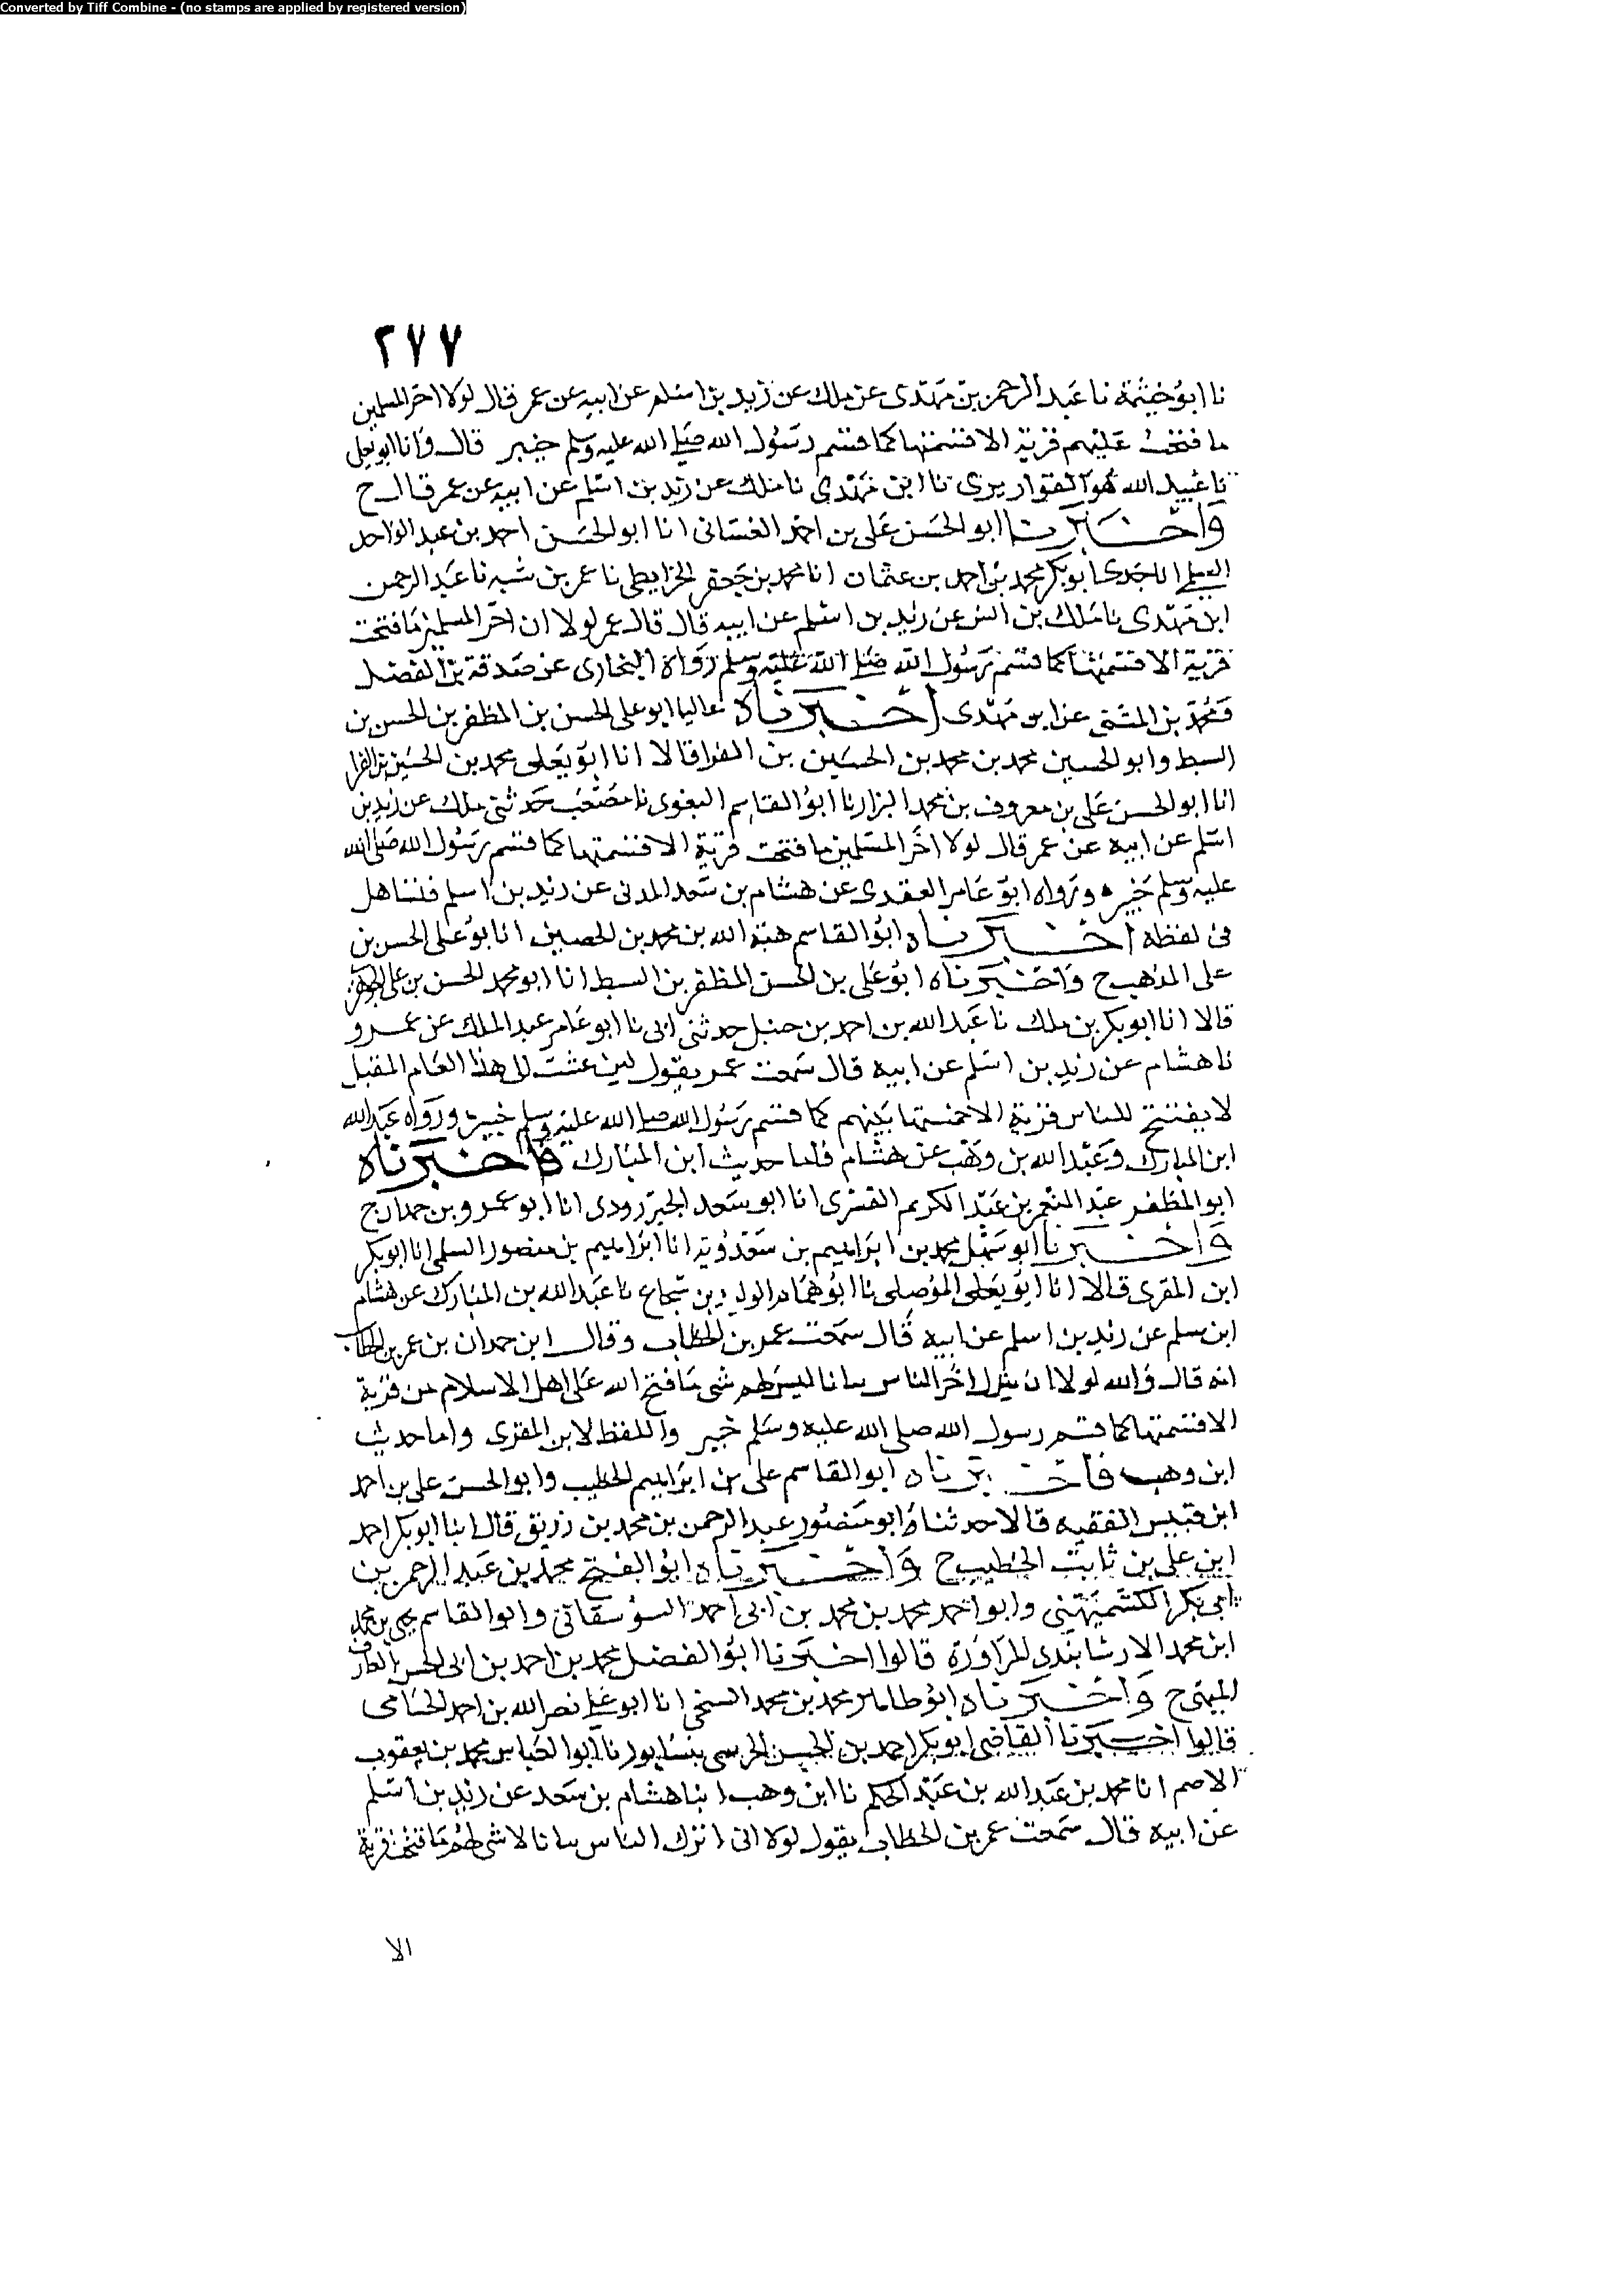 Converted by Tiff Combine - (no stamps are applied by registered version)
٢٧٧
نا ابو خيثمة نا عبد الرحمن بن مهدى عن ملك عن زيد بن اسلم عن ابيه عن عمر قال لولا اخر المسلمين
ما فتحت عليهم قرية الا قسمتها كما قسم رسول الله صلى الله عليه وسلم خيبر قال وانا ابو يعلى
نا عبيد الله هو القواريرى نا ابن مهدى نا ملك عن زيد بن اسلم عن ابيه عن عمر قال ح
واخبرنا ابو الحسن على بن احمد الغسانى انا ابو الحسن احمد بن عبد الواحد
السلمى انا جدى ابو بكر محمد بن احمد بن عثمان انا محمد بن جعفر الخرايطى نا عمر بن شبه نا عبد الرحمن
ابن مهدى نا ملك بن انس عن زيد بن اسلم عن ابيه قال قال عمر لولا ان اخر المسلمين ما فتحت
قرية الا قسمتها كما قسم رسول الله صلى الله عليه وسلم رواه البخارى عن صدقة بن الفضل
ومحمد بن المثنى عن ابن مهدى اخبرناه عاليا ابو على الحسن بن المظفر بن الحسن بن
السبط وابو الحسين محمد بن محمد بن الحسين بن الفرا قالا انا ابو يعلى محمد بن الحسين بن الفرا
انا ابو الحسن على بن معروف بن محمد البزار نا ابو القاسم البغوى نا مصعب حدثنى ملك عن زيد بن
اسلم عن ابيه عن عمر قال لولا اخر المسلمين ما فتحت قرية الا قسمتها كما قسم رسول الله صلى الله
عليه وسلم خيبر ه ورواه ابو عامر العقدى عن هشام بن سعد المدنى عن زيد بن اسلم فتساهل
فى لفظه اخبرناه ابو القاسم هبة الله بن محمد بن الحصين انا ابو على الحسن بن
على المذهب ح واخبرناه ابو على بن الحسن المظفر بن السبط انا ابو محمد الحسن بن على الجوهرى
قالا انا ابو بكر بن ملك نا عبد الله بن احمد بن حنبل حدثنى ابى نا ابو عامر عبد الملك عن عمرو
نا هشام عن زيد بن اسلم عن ابيه قال سمعت عمر يقول لين عشت الى هذا العام المقبل
لا يفتتح للناس قرية الا قسمتها بينهم كما قسم رسول الله صلى الله عليه وسلم خيبر ه ورواه عبد الله
ابن المبارك وعبد الله بن وهب عن هشام فاما حديث ابن المبارك فاخبرناه
ابو المظفر عبد المنعم بن عبد الكريم القشرى انا ابو سعد الجنزرودى انا ابو عمرو بن حمدان ح
واخبرنا ابو سهل محمد بن ابراهيم بن سعدويه انا ابراهيم بن منصور السلمى انا ابو بكر
ابن المقرى قالا انا ابو يعلى الموصلى نا ابو همام الوليد بن شجاع نا عبد الله بن المبارك عن هشام
ابن سلم عن زيد بن اسلم عن ابيه قال سمعت عمر بن الخطاب وقال ابن حمدان بن عمر بن الخطاب
انه قال والله لولا ان يترك اخر الناس ببانا ليس لهم شى ما فتح الله على اهل الاسلام من قرية
الا قسمتها كما قسم رسول الله صلى الله عليه وسلم خيبر واللفظ لابن المقرى واما حديث
ابن وهب فاخبرناه ابو القاسم على بن ابراهيم الخطيب وابو الحسن على بن احمد
ابن قبيس الفقيه قالا حدثنا وابو منصور عبد الرحمن بن محمد بن زريق قال انبا ابو بكر احمد
ابن على بن ثابت الخطيب ح واخبرناه ابو الفتح محمد بن عبد الرحمن بن
ابى بكر الكشميهنى وابو احمد محمد بن محمد بن ابى احمد السوسقانى وابو القاسم يحيى بن محمد
ابن محمد الارشابندى المراوزة قالوا اخبرنا ابو الفضل محمد بن احمد بن ابى الحسن العارف
الميهنى ح واخبرناه ابو طاهر محمد بن محمد السنجى انا ابو على نصر الله بن احمد الخشنامى
قالوا اخبرنا القاضى ابو بكر احمد بن الحسن الحرسى بنيسابور نا ابو العباس محمد بن يعقوب
الاصم انا محمد بن عبد الله بن عبد الحكم نا ابن وهب انبا هشام بن سعد عن زيد بن اسلم
عن ابيه قال سمعت عمر بن الخطاب يقول لولا انى اترك الناس ببانا لا شى لهم ما فتحت قرية
الا